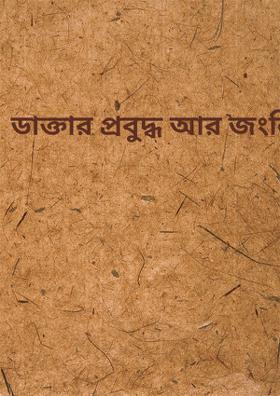 ডাক্তার প্রবুদ্ধ আর